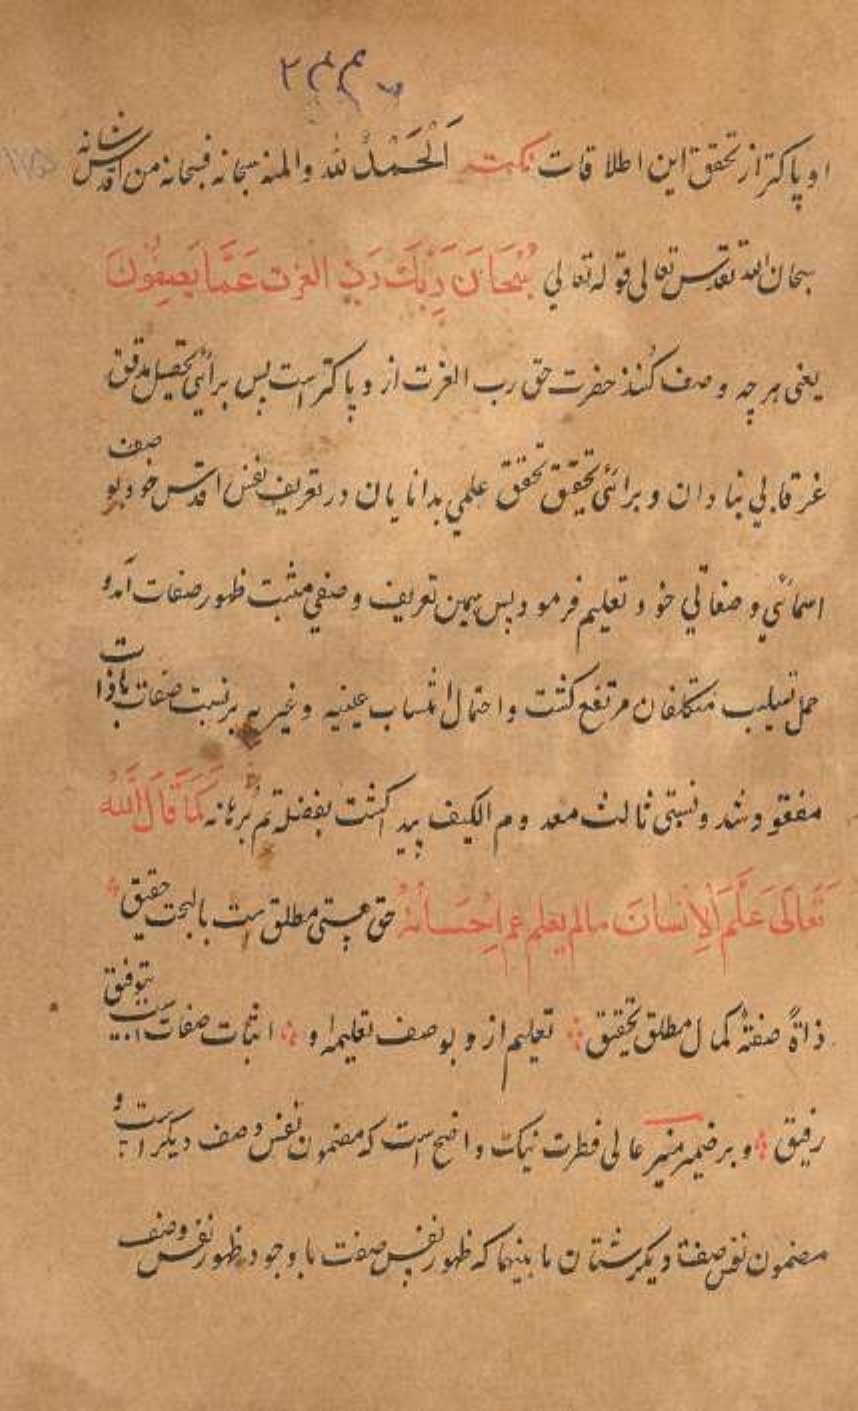 او پاکتر از تحقق این اطلاقات نکته اَلْحَمْدُ لله والمنه سبحانه فسبحانه من اقدس شانه
سبحان الله تقدس تعالی قوله تعالی سُبْحَانَ رَبِّكَ رَبِّ العزت عَمَّا يَصِفُونَ
یعنی هر چه وصف کنند حضرت حق رب العزت از و پاکتر است پس برائی تحصیل مدقق
بنادان و برائی تحقیق تحقق علمی بدانایان در تعریف نفس اقدس خود بوصف
اسمائی و صفاتی خود تعلیم فرمود پس بهمین تعریف وصفی مثبت ظهور صفات آمد و
حمل تسلیب متکلفان مرتفع کشت و احتمال انتساب عینیه و غیریه بر نسبت صفات با ذات
مفقود شد و نسبتی ثالث معدوم الکیف پیدا کشت بفضله تم برهانه كَمَا قَالَ اللهُ
تَعَالَى عَلَّمَ الْإِنْسَانَ مالم يعلم عم اِحْسَانُهُ حق هستی مطلق است بالبحت حقیق
ذاةً صفتهٔ کمال مطلق تحقیق تعلیم از و بوصف تعلیم او اثبات صفات است بتوفیق
رفیق و بر ضمیر منیر عالی فطرت نیک واضح است که مضمون نفس وصف دیکر است و
مضمون نفس صفة دیکر شتان ما بینهما که ظهور نفس صفت با وجود ظهور نفس وصف